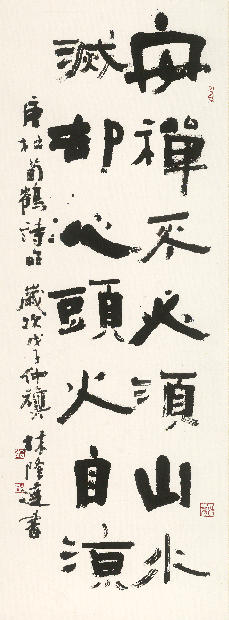 安禪不必須山水
滅却心頭火自涼
唐杜荀鶴詩句 歲次戊子仲 林隆達書